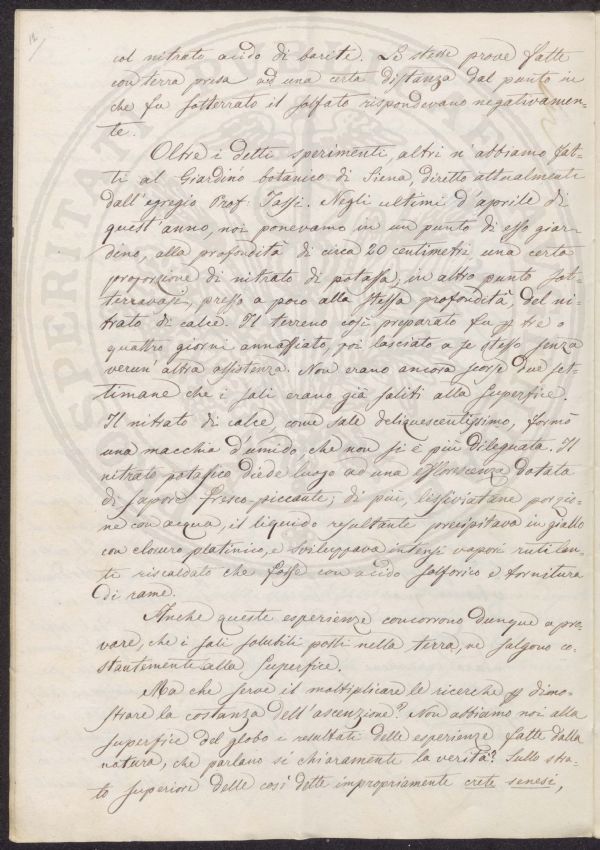 12
col nitrato acido di barite. Le stesse prove fatte
con terra presa ad una certa distanza dal punto in
che fu sotterrato il solfato rispondevano negativamen-
te.
Oltre i detti sperimenti, altri n'abbiamo fat-
ti al Giardino botanico di Siena, diretto attualmente
dall'egregio Prof. Tassi. Negli ultimi d'aprile di
quest'anno, noi ponevamo in un punto di esso giar-
dino, alla profondità di circa 20 centimetri una certa
proporzione di nitrato di potassa, in altro punto sot-
terravasi, presso a poco alla stessa profondità, del ni-
trato di calce. Il terreno così preparato fu p tre o
quattro giorni annaffiato, poi lasciato a se stesso senza
verun'altra assistenza. Non erano ancora scorse due set-
timane che i sali erano già saliti alla superfice.
Il nitrato di calce, come sale deliquescentissimo, formò
una macchia d'umido che non si è più dileguata. Il
nitrato potassico diede luogo ad una efflorescenza dotata
di sapore fresco-piccante; di più, lissiviatane porzio-
ne con acqua, il liquido resultante precipitava in giallo
con cloruro platinico, e sviluppava intensi vapori rutilan-
ti riscaldato che fosse con acido solforico e tornitura
di rame.
Anche queste esperienze concorrono dunque a pro-
vare, che i sali solubili posti nella terra, ne salgono co-
stantemente alla superfice.
Ma che serve il moltiplicare le ricerche p dimo-
strare la costanza dell'ascenzione? Non abbiamo noi alla
superfice del globo i resultati delle esperienze fatte dalla
natura, che parlano sì chiaramente la verità? Sullo stra-
to superiore delle così dette impropriamente crete senesi,